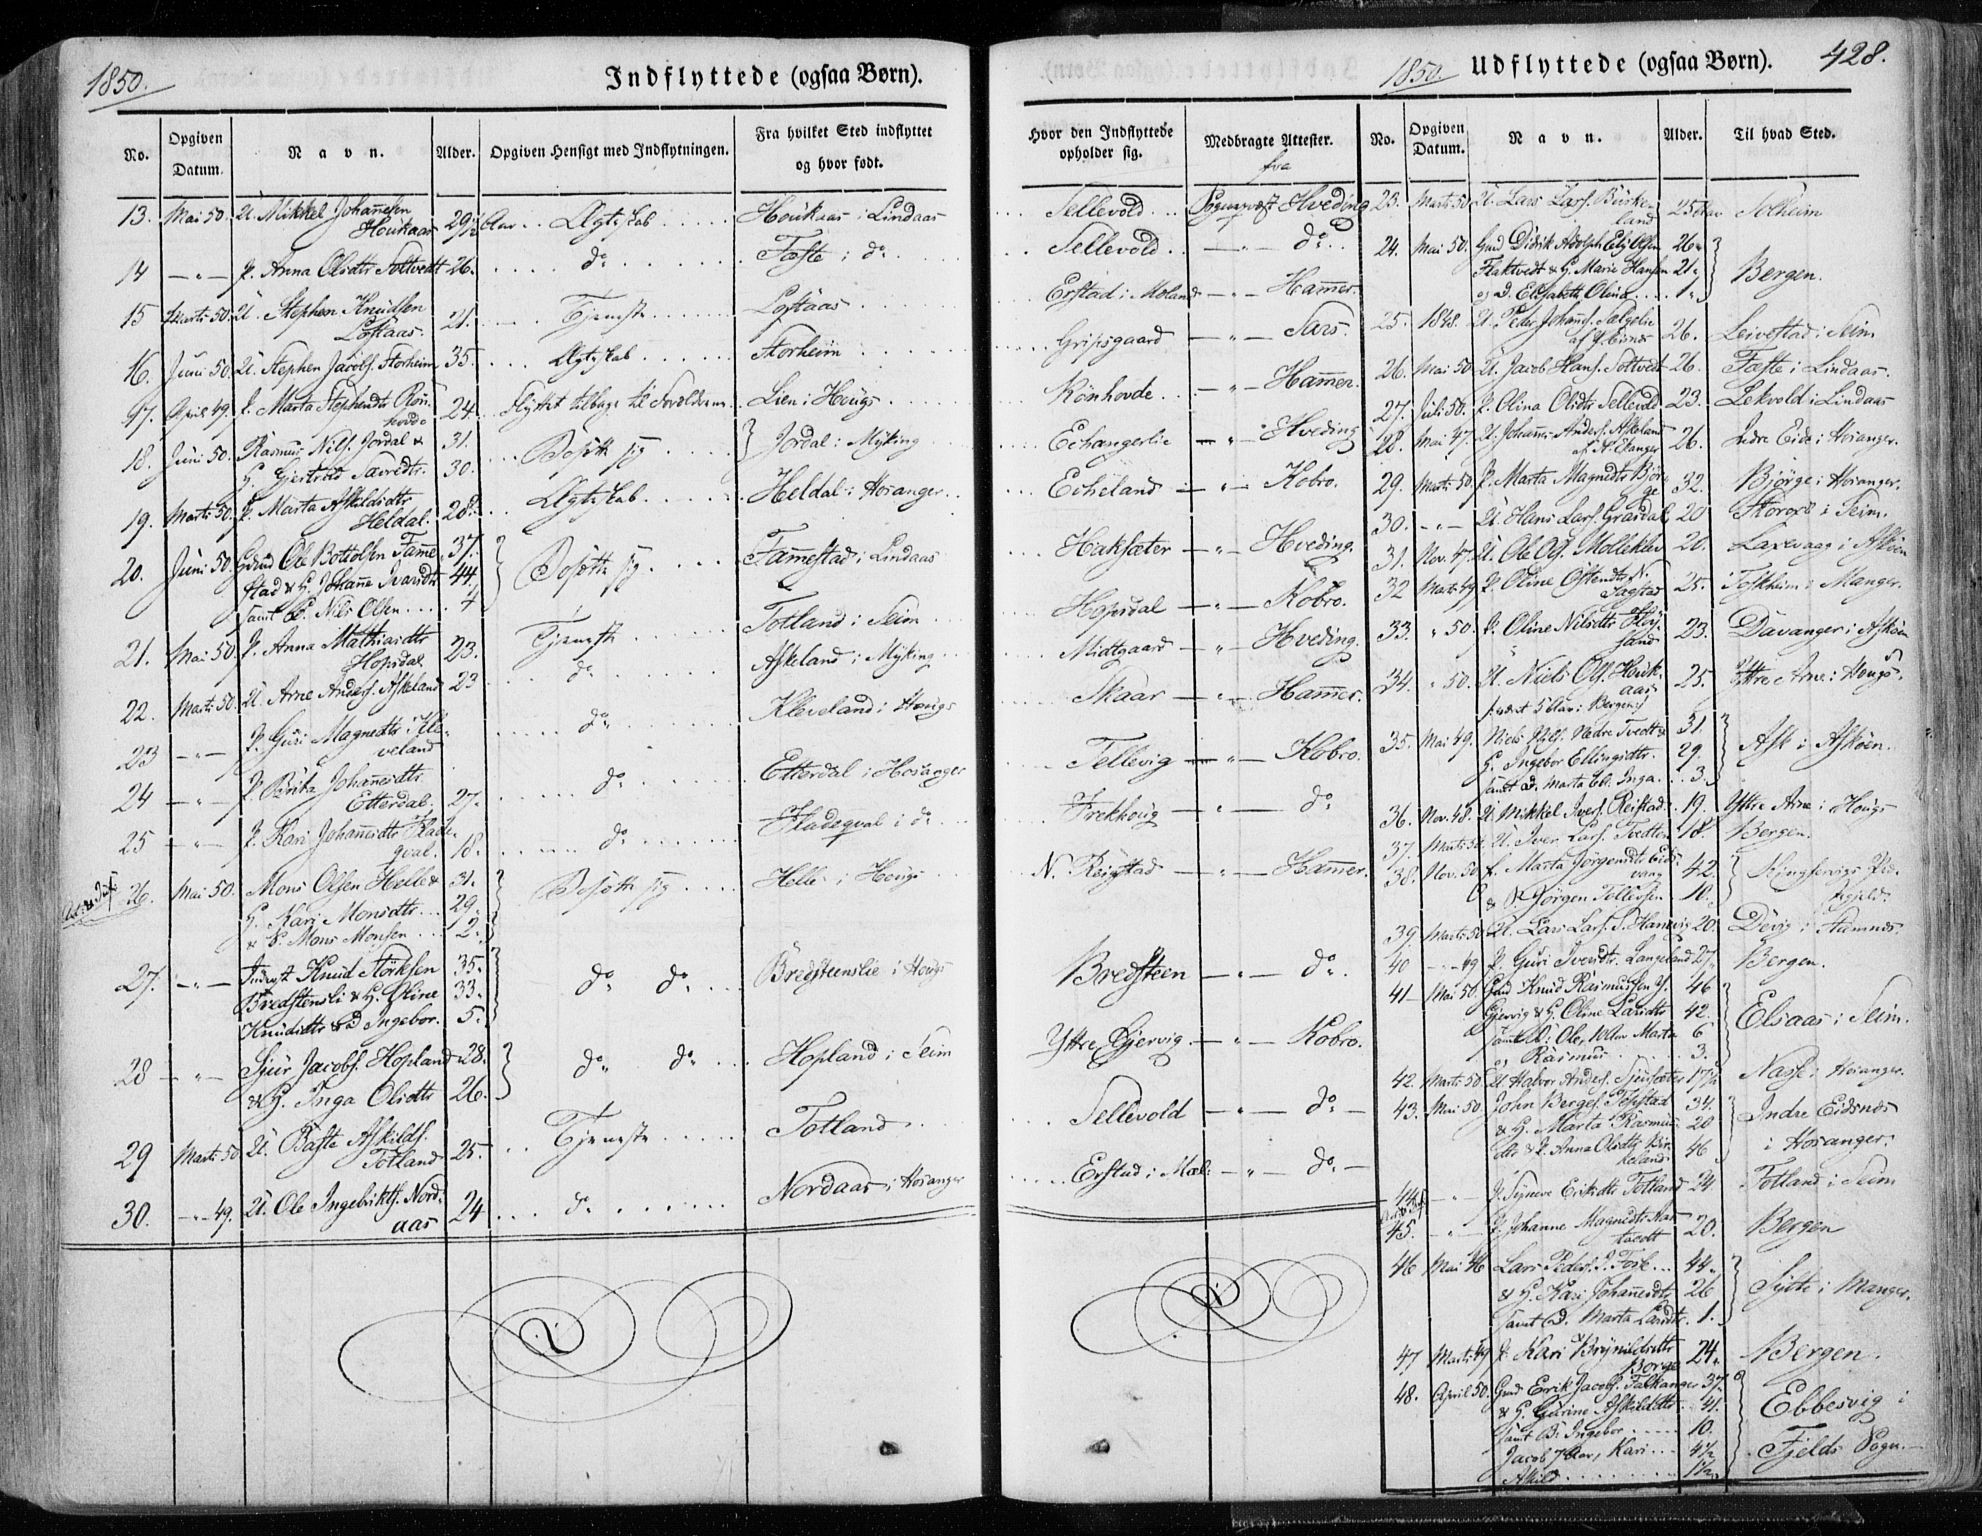 1850. Indflyttede (ogsaa Børn).
No. Opgiven Datum. Navn. Alder. Opgiven Hensigt med Indflytningen. Fra hvilket Sted indflyttet og hvor født.
13. Mai 50. U. Mikkel Johannesen Houkaas 29 1/2 Aar Ægteskab Houkaas i Lindaas
14 — " — P. Anna Olsdtr Soltvedt 26. do Fæste i do
15 Marts 50. U. Stephen Knudsen Loftaas. 21. Tjeneste Loftaas
16. Juni 50. U. Stephen Jacobs. Storheim 35. Ægteskab Storheim
17. April 49. P. Marta Stephensdtr Rönhovde 24. Flyttet tilbage til Forældrene Lien i Hougs
18. Juni 50. Rasmus Nils. Jordal & 31. Bosætte sig Jordal i Myking
G. Gjertrud Sævredtr. 30.
19. Marts 50. P. Marta Askildsdtr Heldal. 28. Ægteskab Heldal i Hosanger
20. Juni 50. Gdmd Ole Bottolsen Famme- 37. Bosætte sig Fammestad i Lindaas
stad & H. Johanne Ivarsdtr 44.
samt S. Nils Olsen 4
21. Mai 50. P. Anna Mathiasdtr Hopsdal 23. Tjeneste Totland i Seim
22. Marts 50. U. Arne Anders. Askeland 23 do Askeland i Myking
23 — " — P. Guri Magnedtr Kleveland do Kleveland i Hougs
24 — " — P. Brita Johannesdtr Etterdal. 27. do Etterdal i Hosanger
25 — " — P. Kari Johannesdtr Fladeqval. 18. do Fladeqval i do
26. Mai 50. Mons Olsen Helle & 31. Bosætte sig Helle i Hougs
H. Kari Monsdtr 29.
& S. Mons Monsen 2.
27. — " — Inderst Knud Störksen 35. do do Bredsteenslie i Hougs
Bredstensli & H. Oline 33.
Knudsdtr & D Ingebor. 5.
28 — " — Sjur Jacobs. Hopland 28. do do Hopland i Seim
& H. Inga Olsdtr 26.
29 Marts 50 U. Baste Askilds. Totland 25. Tjeneste Totland
30. — " — 49. U. Ole Ingebrikts. Nordaas 24 do Nordaas i Hosanger
Hvor den Indflyttede opholder sig. Medbragte Attester. fra
Sellevold Sognepræst Hveding
Sellevold — " — do
Erstad i Moland — " — Hammer.
Gripsgaard — " — Sars.
Rönhovde — " — Hammer.
Echangerlie — " — Hveding
Echeland — " — Kobro.
Hakesæter — " — Hveding.
Hopsdal — " — Kobro.
Midtgaard — " — Hveding.
Skaar — " — Hammer.
Tellevig — " — Kobro.
Frekhoug — " — do
N. Reigstad — " — Hammer.
Bredsteen — " — do.
Yttre Gjervig. — " — Kobro.
Sellevold — " — do —
Erstad i Mæl. — " — do —
1850. Udflyttede (ogsaa Børn). 428.
No. Opgiven Datum. Navn. Alder. Til hvad Sted.
23. Marts 50 U. Lars Lars. Birkeland 25 Aar Solheim
24. Mai 50. Gmd Didrik Adolph Olsen 26. Bergen.
Flaktvedt & H. Marie Hansen 21.
og D. Elisabeth Olina 1.
25. 1848. U. Peder Johans. Sælgelie 26. Leivestad i Seim
26. Mai 50. U. Jacob Hans. Soltvedt 26. Fæste i Lindaas.
27. Juli 50. P. Olina Olsdtr Sellevold 23. Lekvold i Lindaas
28. Mai 47. U. Johannes Anders. Askeland 26. Indre Eide i Hosanger.
29. Marts 50. P. Marta Magnedtr Björge 32. Björge i Hosanger.
30. — " — U. Hans Lars. Grasdal 20 Storoxe i Seim.
31. Nov. 47. U. Ole Ols. Mollekleev 20. Laxevaag i Askøen
32 Marts 49 P. Oline Ostendtr N. Tagstad 25. Toskheim i Manger.
33. " 50. P. Oline Nilsdtr Flossand 23. Davanger i Askøen
34. " 50. U. Niels Ols. Houkaas 25. Yttre Arne i Hougs.
35. Mai 49. Niels Nils. Nedre Tvedt & 31. Ask i Askøen.
H. Ingebor Ellingsdtr. 29.
samt D. Marta Inga. 3.
36. Nov. 48. U. Mikkel Ivers. Reistad. 19. Yttre Arne i Hougs
37. Marts 50. U. Iver Lars. Tvedten 18. Bergen.
38. Nov. 50 f. Marta Jörgensdtr Eidsvaag 42.
& S. Jörgen Tollefsen 10.
39. Marts 50 U. Lars Lars. S. Hanevig 20. Devig i Hammer.
40 — " — 49 P. Guri Iversdtr. Langeland 27. Bergen.
41 — Mai 50. Gmd Knud Rasmussen Y. 46 Elsaas i Seim.
Gjervig & H. Oline Larsdtr 42.
samt B: Ole, Marta 6
og Rasmus 3.
42. Marts 50. U Halvor Anders. 17 1/2 Nasse i Hosanger.
43. Mai 50. John Berges. Topstad 34. Indre Eidsnes i Hosanger.
& H. Marta Rasmusdtr 20
& P. Anna Olsdtr Birkeland 46
44. — " — P. Synneve Eriksdtr Totland 24. Totland i Seim
45. — " — P. Johanne Magnedtr Aartaedt 20. Bergen
46 Mai 46 Lars Peders. I. Fosse 44. Sylte i Manger.
& H. Kari Johannesdtr 26
samt D. Marta Larsdtr. 1.
47 Marts 49 P. Kari Brynildsdtr Borge 24. Bergen.
48. April 50. Gmd Erik Jacobs. Falkanger 37. Ebbesvig i Fjelds Sogn.
& H. Gurine Askildsdtr 41.
samt B. Ingebor 10.
Jacob 7 Aar, Kari 4 1/2
Askild 1 1/2